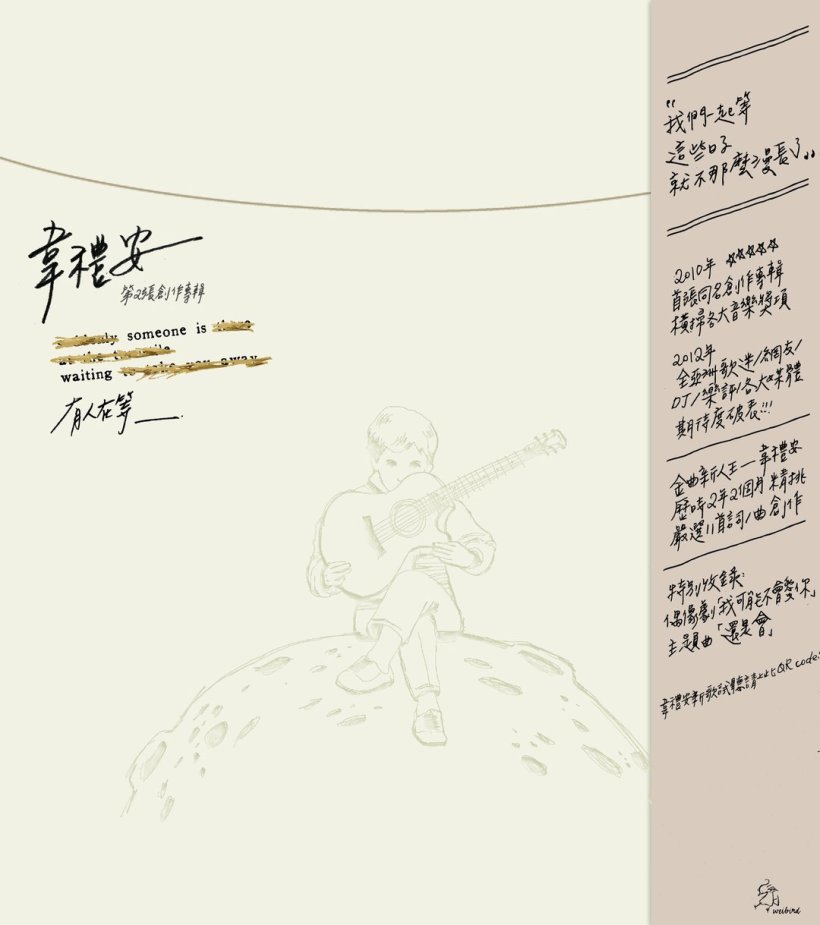 韋禮安
第2張創作專輯
someone is
waiting
有人在等___.
"我們一起等
這些日子
就不那麼漫長了"
2010年 ☆☆☆☆☆
首張同名創作專輯
橫掃各大音樂獎項
2012年
全亞洲歌迷/網友/
DJ/樂評/各大媒體
期待度破表!!!
金曲新人王—韋禮安
歷時2年2個月 精挑
嚴選11首詞/曲創作
特別收錄:
偶像劇「我可能不會愛你」
主題曲「還是會」
韋禮安新歌試聽請上此QR code:
weibird